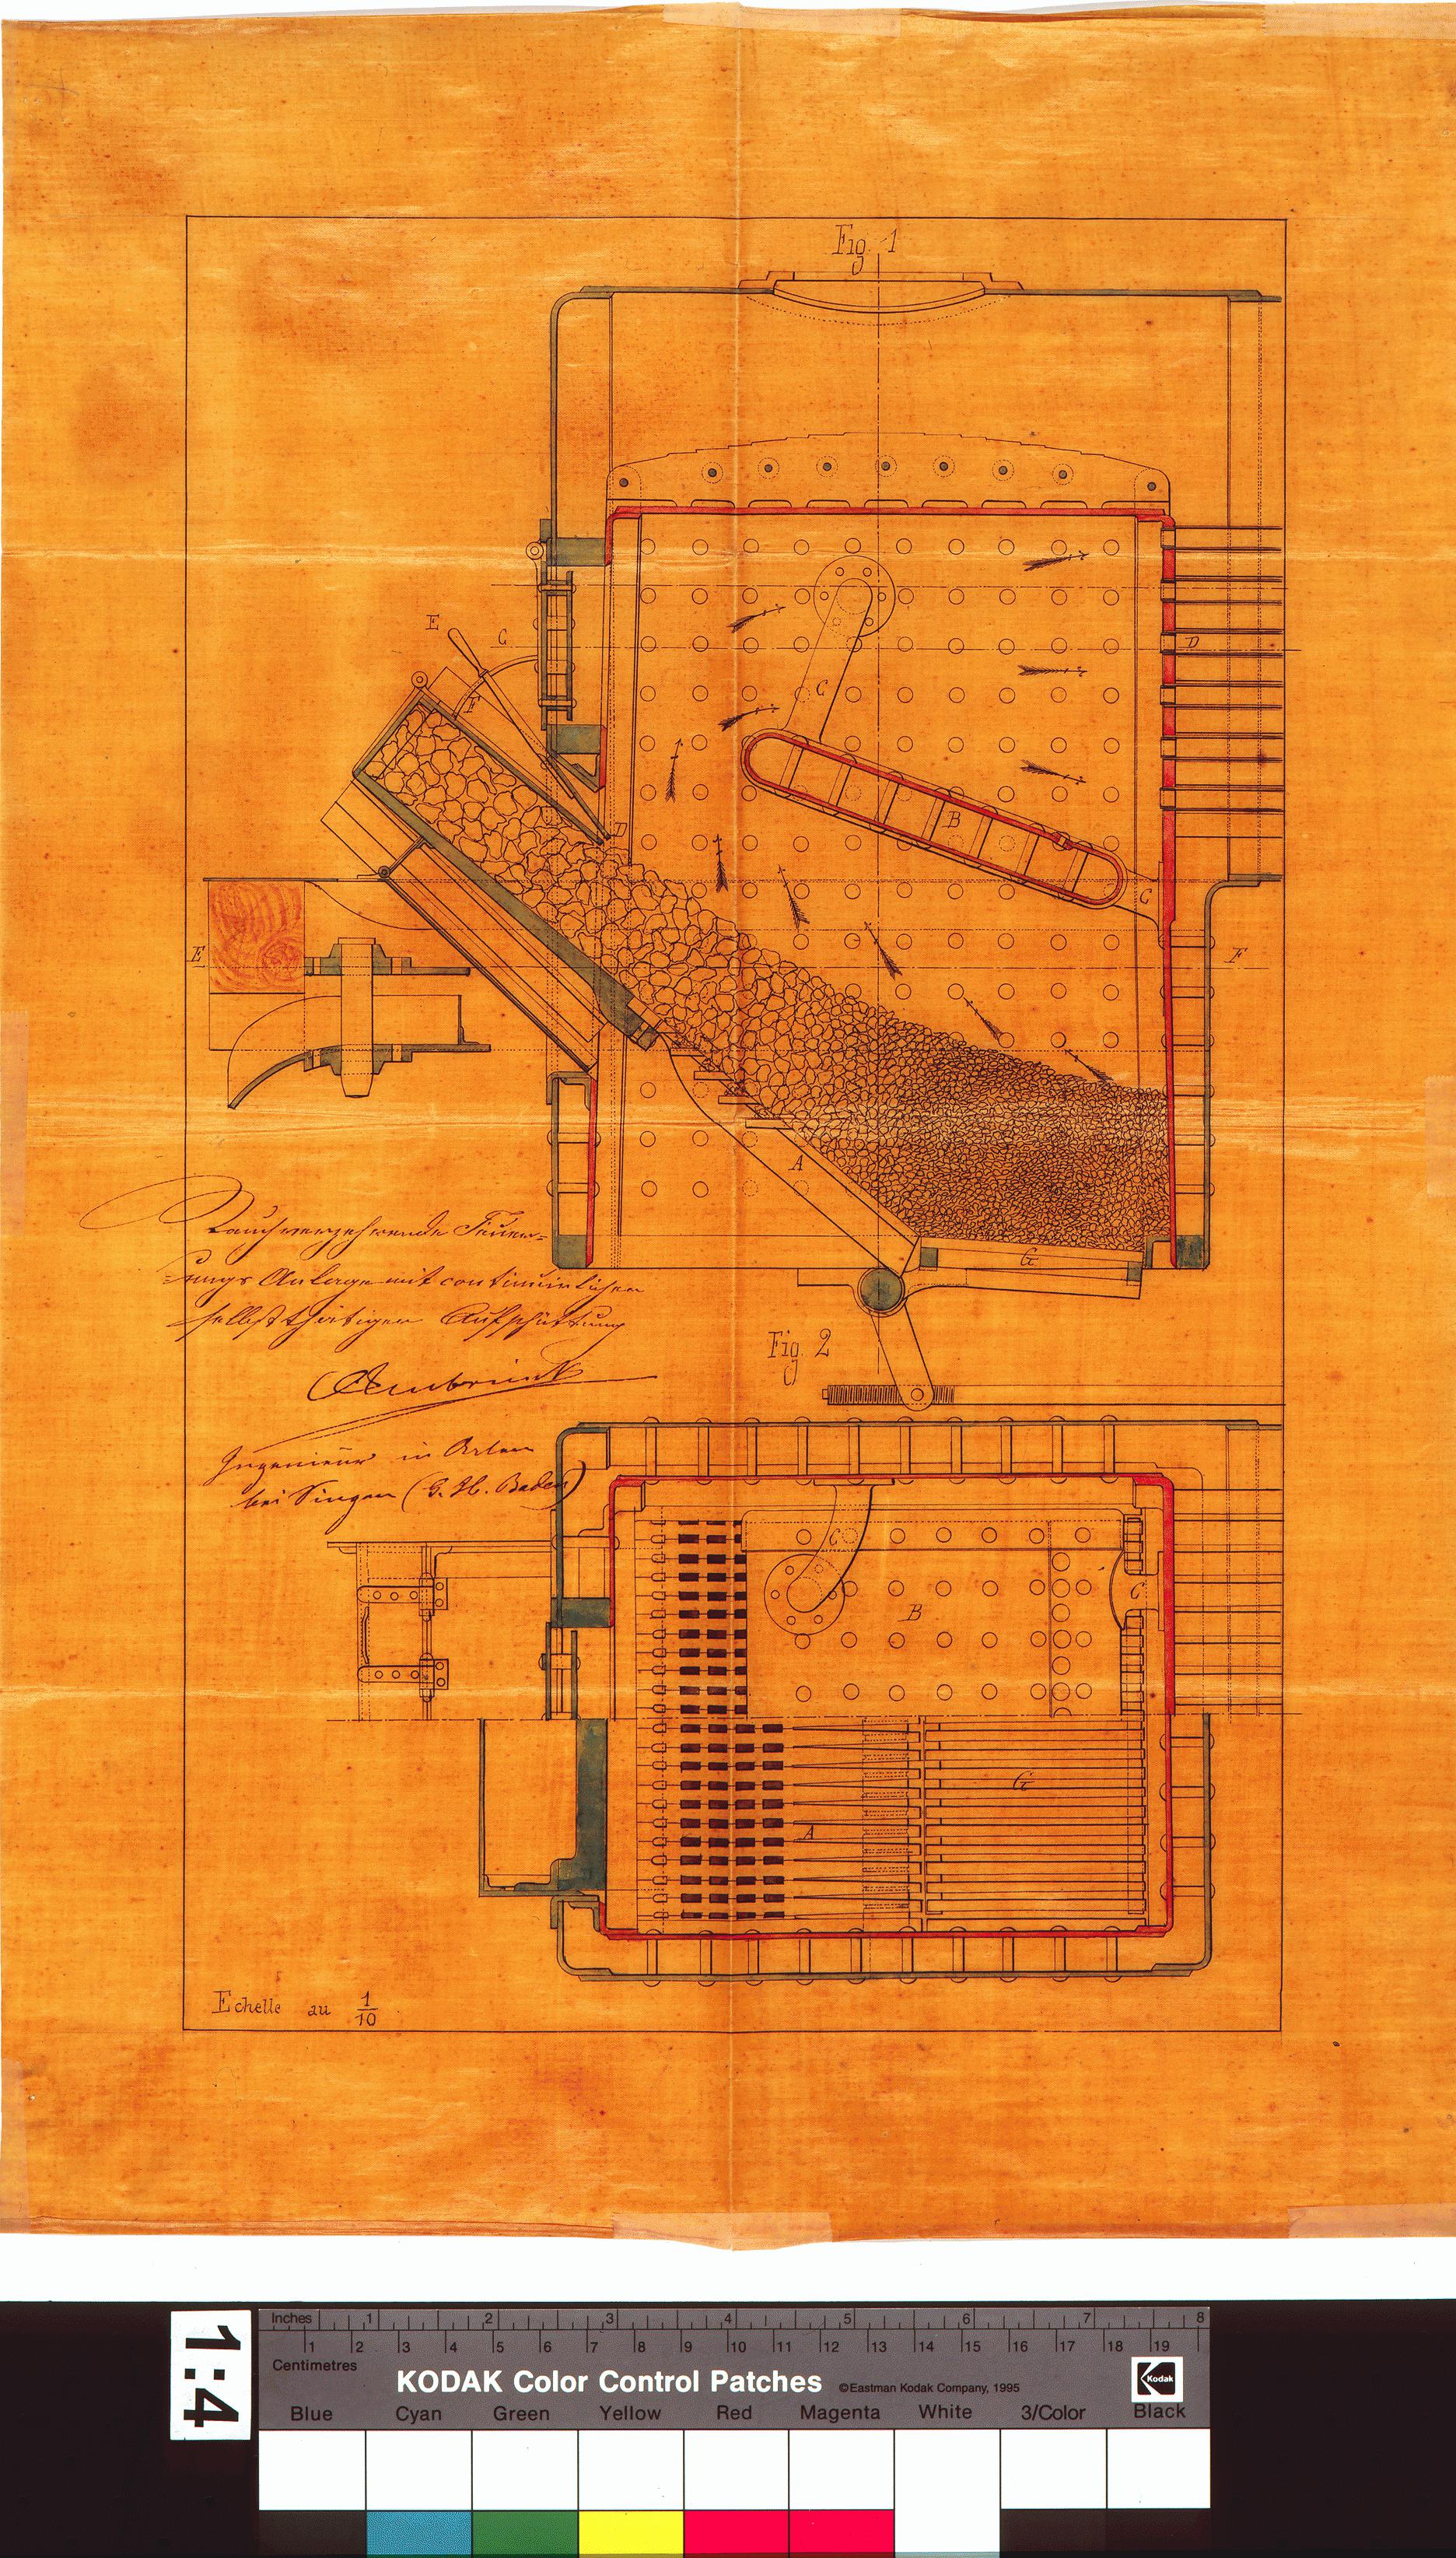 Fig. 1
E
C
F
D
D
C
B
C
E
F
A
G
Rauchverzehrende Feuer=
ungs Anlage mit continuirlicher
selbstthätiger Aufschüttung
Ingenieur in Arlen
bei Singen (G. H. Baden)
Fig. 2
C
B
C
G
A
Echelle au 1/10
1:4
Inches 1 2 3 4 5 6 7 8
Centimetres 1 2 3 4 5 6 7 8 9 10 11 12 13 14 15 16 17 18 19
KODAK Color Control Patches ©Eastman Kodak Company, 1995 Kodak
Blue Cyan Green Yellow Red Magenta White 3/Color Black